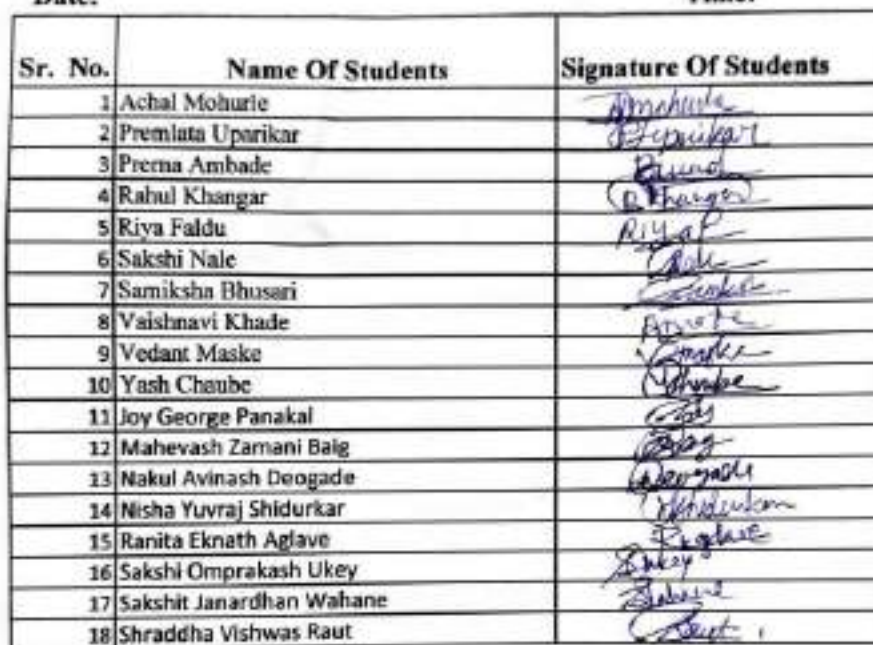 Sr. No. Name Of Students Signature Of Students
1 Achal Mohurle Amohurle
2 Premlata Uparikar Uparikar
3 Prerna Ambade
4 Rahul Khangar R Khangar
5 Riya Faldu RiyaF
6 Sakshi Nale
7 Samiksha Bhusari
8 Vaishnavi Khade
9 Vedant Maske Vmaske
10 Yash Chaube Ychaube
11 Joy George Panakal Joy
12 Mahevash Zamani Baig Baig
13 Nakul Avinash Deogade Deogade
14 Nisha Yuvraj Shidurkar Nshidurkar
15 Ranita Eknath Aglave Raglave
16 Sakshi Omprakash Ukey Sukey
17 Sakshit Janardhan Wahane
18 Shraddha Vishwas Raut Raut